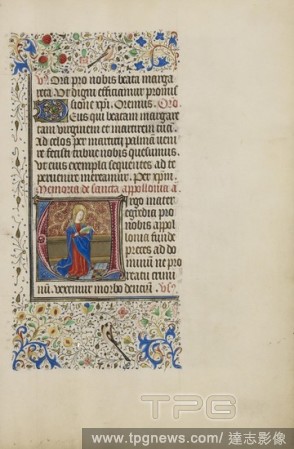 V. Ora pro nobis beata marga
reta Ut digni efficiamur promis
sione xpi. Oremus. Oro
Deus qui beatam margare
tam virginem et martirem tuam
Ad celos per martirii palmam veni
re fecisti tribue nobis quesumus
ut eius exempla sequentes ad te
pervenire mereamur. Per xpm
Memoria de sancta appollonia a.
Virgo mater
egregia pro
nobis appol
lonia funde
preces ad do
minum ne pro
reatu crimi
num vexemur morbo dencium. Vs
TPG
www.tpgnews.com / 達志影像